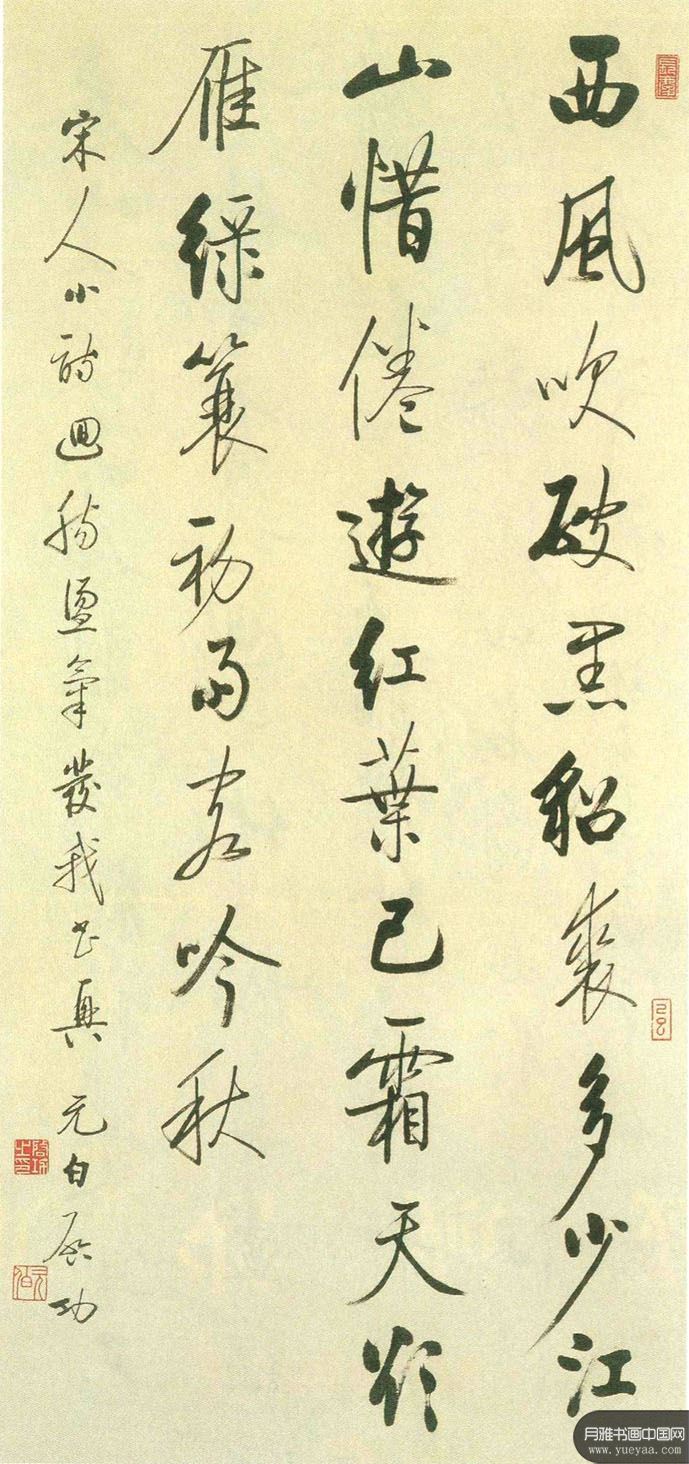 西風吹破黑貂裘多少江
山惜倦遊紅葉已霜天欲
雁綠簑初雨客吟秋
宋人小詩迴腸盪氣發我書興 元白启功
月雅书画中国网
www.yueyaa.com